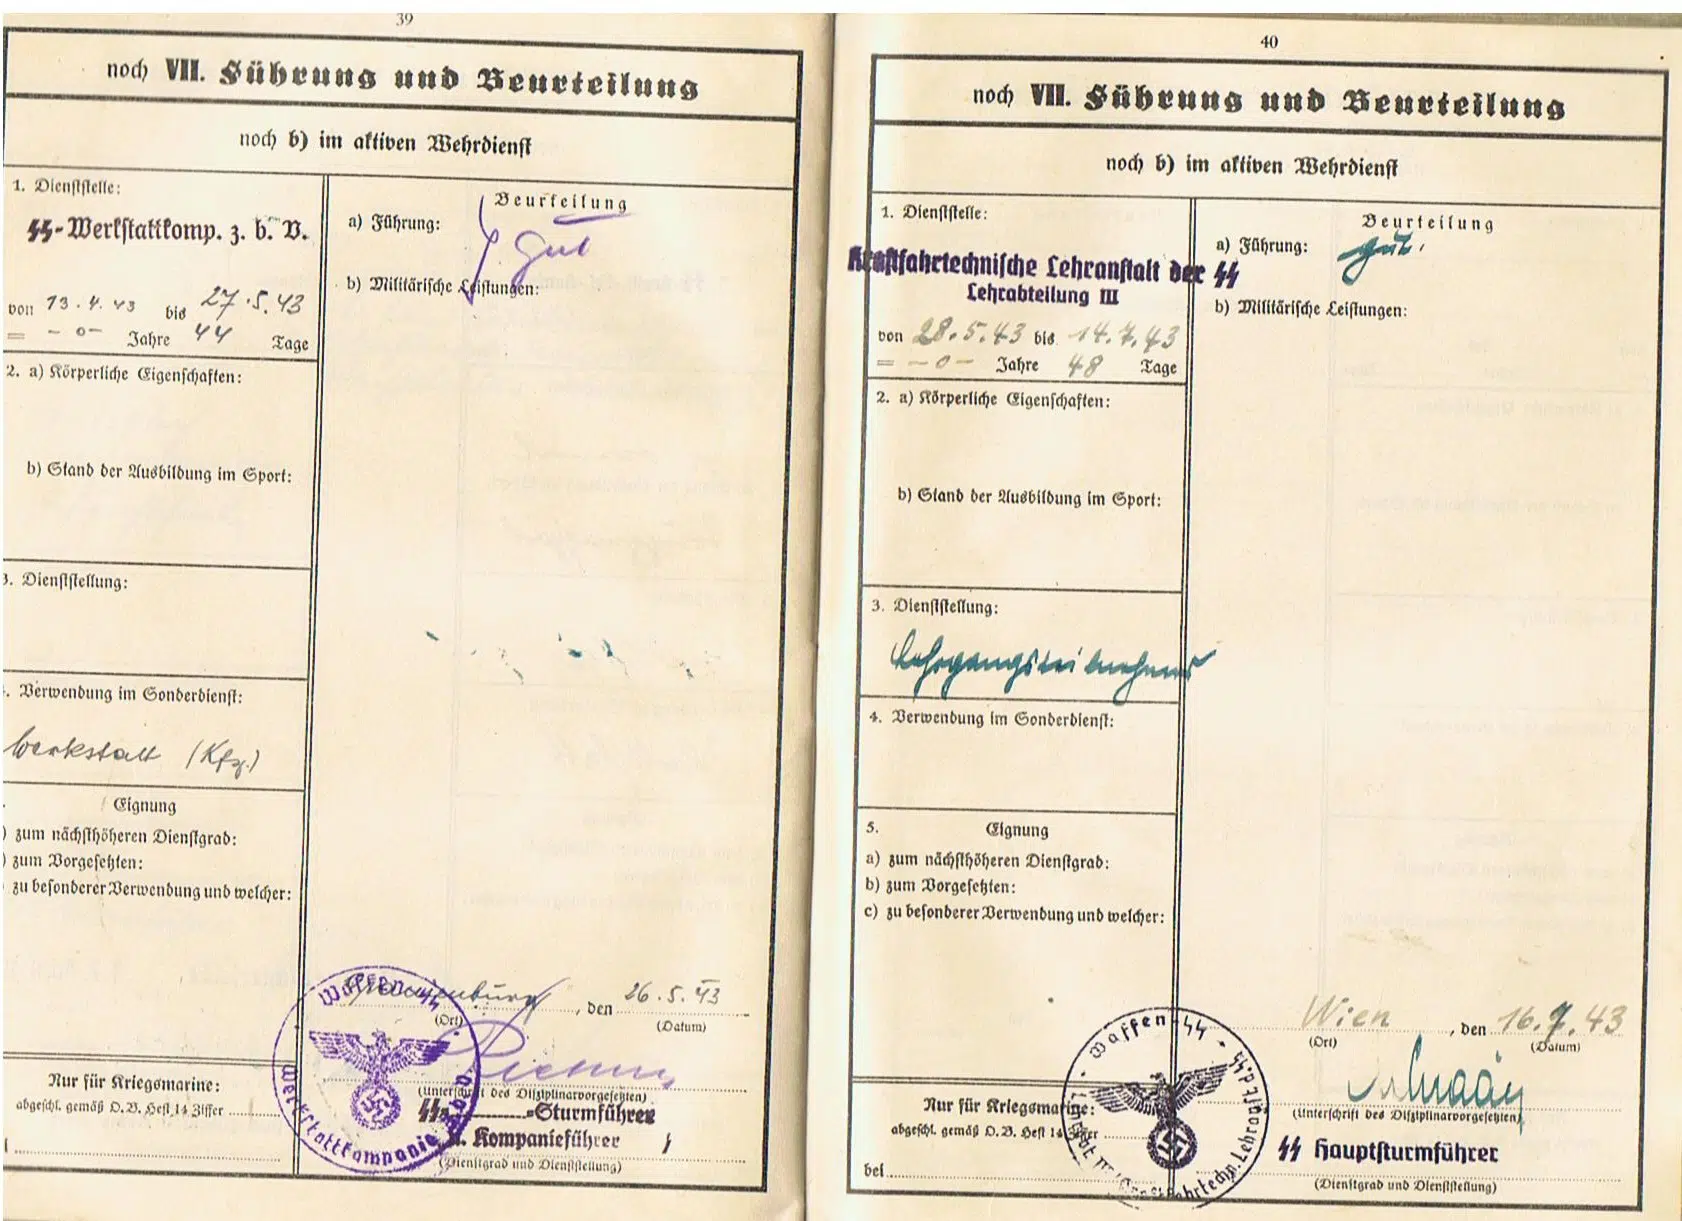 39
noch VII. Führung und Beurteilung
noch b) im aktiven Wehrdienst
1. Dienststelle:
SS-Werkstattkomp. z. b. V.
von 13.4.43 bis 27.5.43
= -0- Jahre 44 Tage
2. a) Körperliche Eigenschaften:
b) Stand der Ausbildung im Sport:
3. Dienststellung:
. Verwendung im Sonderdienst:
Werkstatt (Kfz.)
Eignung
) zum nächsthöheren Dienstgrad:
) zum Vorgesetzten:
zu besonderer Verwendung und welcher:
Beurteilung
a) Führung:
gut
b) Militärische Leistungen:
Oranienburg, den 26.5.43
(Ort) (Datum)
(Unterschrift des Disziplinarvorgesetzten)
SS -Sturmführer
u. Kompanieführer
(Dienstgrad und Dienststellung)
Waffen-SS
Werkstattkompanie
Nur für Kriegsmarine:
abgeschl. gemäß D.B. Heft 14 Ziffer
40
noch VII. Führung und Beurteilung
noch b) im aktiven Wehrdienst
1. Dienststelle:
Kraftfahrtechnische Lehranstalt der SS
Lehrabteilung III
von 28.5.43 bis 14.7.43
= -0- Jahre 48 Tage
2. a) Körperliche Eigenschaften:
b) Stand der Ausbildung im Sport:
3. Dienststellung:
Lehrgangsteilnehmer
4. Verwendung im Sonderdienst:
5. Eignung
a) zum nächsthöheren Dienstgrad:
b) zum Vorgesetzten:
c) zu besonderer Verwendung und welcher:
Beurteilung
a) Führung: gut.
b) Militärische Leistungen:
Wien, den 16.7.43
(Ort) (Datum)
(Unterschrift des Disziplinarvorgesetzten)
SS Hauptsturmführer
(Dienstgrad und Dienststellung)
Waffen-SS
Kraftfahrtechn. Lehranst. d. SS
Nur für Kriegsmarine:
abgeschl. gemäß D.B. Heft 14 Ziffer
bei